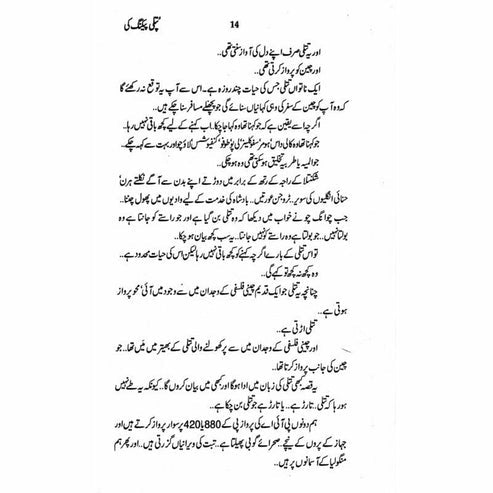 14 پتلی پیکنگ کی
اور یہ تتلی صرف اپنے دل کی آواز سنتی تھی..
اور چین کو پرواز کرتی تھی..
ایک ناتواں تتلی جس کی حیات چند روزہ ہے۔ اس سے آپ یہ توقع نہ رکھئے گا
کہ وہ آپ کو چین کے سفر کی وہی کہانیاں سنائے گی جو پچھلے مسافر سنا چکے ہیں..
اگرچہ اسے یقین ہے کہ جو کہنا تھا وہ کہا جا چکا.. اب کہنے کے لیے کچھ باقی نہیں رہا..
جو کہنا تھا وہ کالی داس' ہومر' سفوکلیز' لی پو' طوفو' کنفیوشس' لاؤ چو اور بہت سے کہہ چکے..
جو المیہ یا طربیہ تخلیق ہو سکتی تھی وہ ہو چکی..
شکنتلا کے راجہ کے رتھ کے برابر میں دوڑتے اپنے بدن سے آگے نکلتے ہرن'
حنائی انگلیوں کی سویر.. ٹروجن عورتیں.. بادشاہ کی خدمت کے لیے وادیوں میں پھول چننا..
جب چوانگ چو نے خواب میں دیکھا کہ وہ تتلی بن گیا ہے اور جو راستے کو جانتا ہے وہ
بولتا نہیں.. جو بولتا ہے وہ راستے کو نہیں جانتا.. یہ سب کچھ بیان ہو چکا..
تو اس تتلی کے بارے اگرچہ کہنے کو کچھ باقی نہیں رہا لیکن اس کی حیات محدود ہے..
وہ کچھ نہ کچھ تو کہے گی..
چنانچہ یہ تتلی جو ایک قدیم چینی فلسفی کے وجدان میں سے وجود میں آئی' محو پرواز
ہوتی ہے..
تتلی اڑتی ہے..
اور چینی فلسفی کے وجدان میں سے پر کھولنے والی تتلی کے بھیتر میں مَیں تھا.. جو
چین کی جانب پرواز کرتا تھا..
یہ قصہ کبھی تتلی کی زبان میں ادا ہو گا اور کبھی میں بیان کروں گا.. کیونکہ یہ طے نہیں
ہو رہا کہ تتلی.. تارڑ ہے.. یا تارڑ ہے جو تتلی بن چکا ہے..
ہم دونوں پی آئی اے کی پرواز پی کے 880 یا 420 پر سوار پرواز کرتے ہیں اور
جہاز کے پروں کے نیچے.. صحرائے گوبی پھیلتا ہے.. تبت کی ویرانیاں گزرتی ہیں.. اور پھر ہم
منگولیا کے آسمانوں پر ہیں..